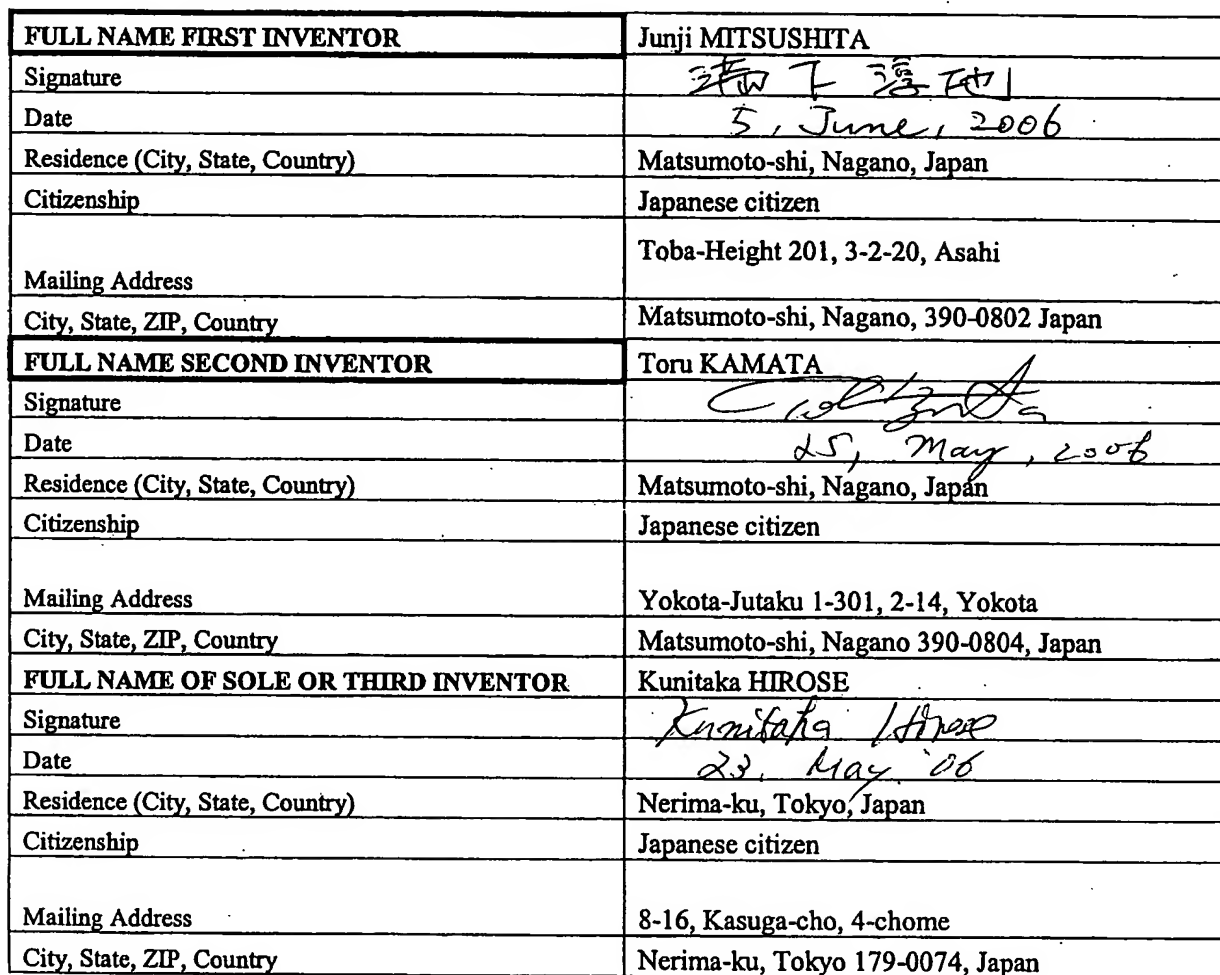 FULL NAME FIRST INVENTOR Junji MITSUSHITA
Signature 満下淳地
Date 5, June, 2006
Residence (City, State, Country) Matsumoto-shi, Nagano, Japan
Citizenship Japanese citizen
Toba-Height 201, 3-2-20, Asahi
Mailing Address
City, State, ZIP, Country Matsumoto-shi, Nagano, 390-0802 Japan
FULL NAME SECOND INVENTOR Toru KAMATA
Signature
Date 25, May, 2006
Residence (City, State, Country) Matsumoto-shi, Nagano, Japan
Citizenship Japanese citizen
Mailing Address Yokota-Jutaku 1-301, 2-14, Yokota
City, State, ZIP, Country Matsumoto-shi, Nagano 390-0804, Japan
FULL NAME OF SOLE OR THIRD INVENTOR Kunitaka HIROSE
Signature Kunitaka Hirose
Date 23, May '06
Residence (City, State, Country) Nerima-ku, Tokyo, Japan
Citizenship Japanese citizen
Mailing Address 8-16, Kasuga-cho, 4-chome
City, State, ZIP, Country Nerima-ku, Tokyo 179-0074, Japan